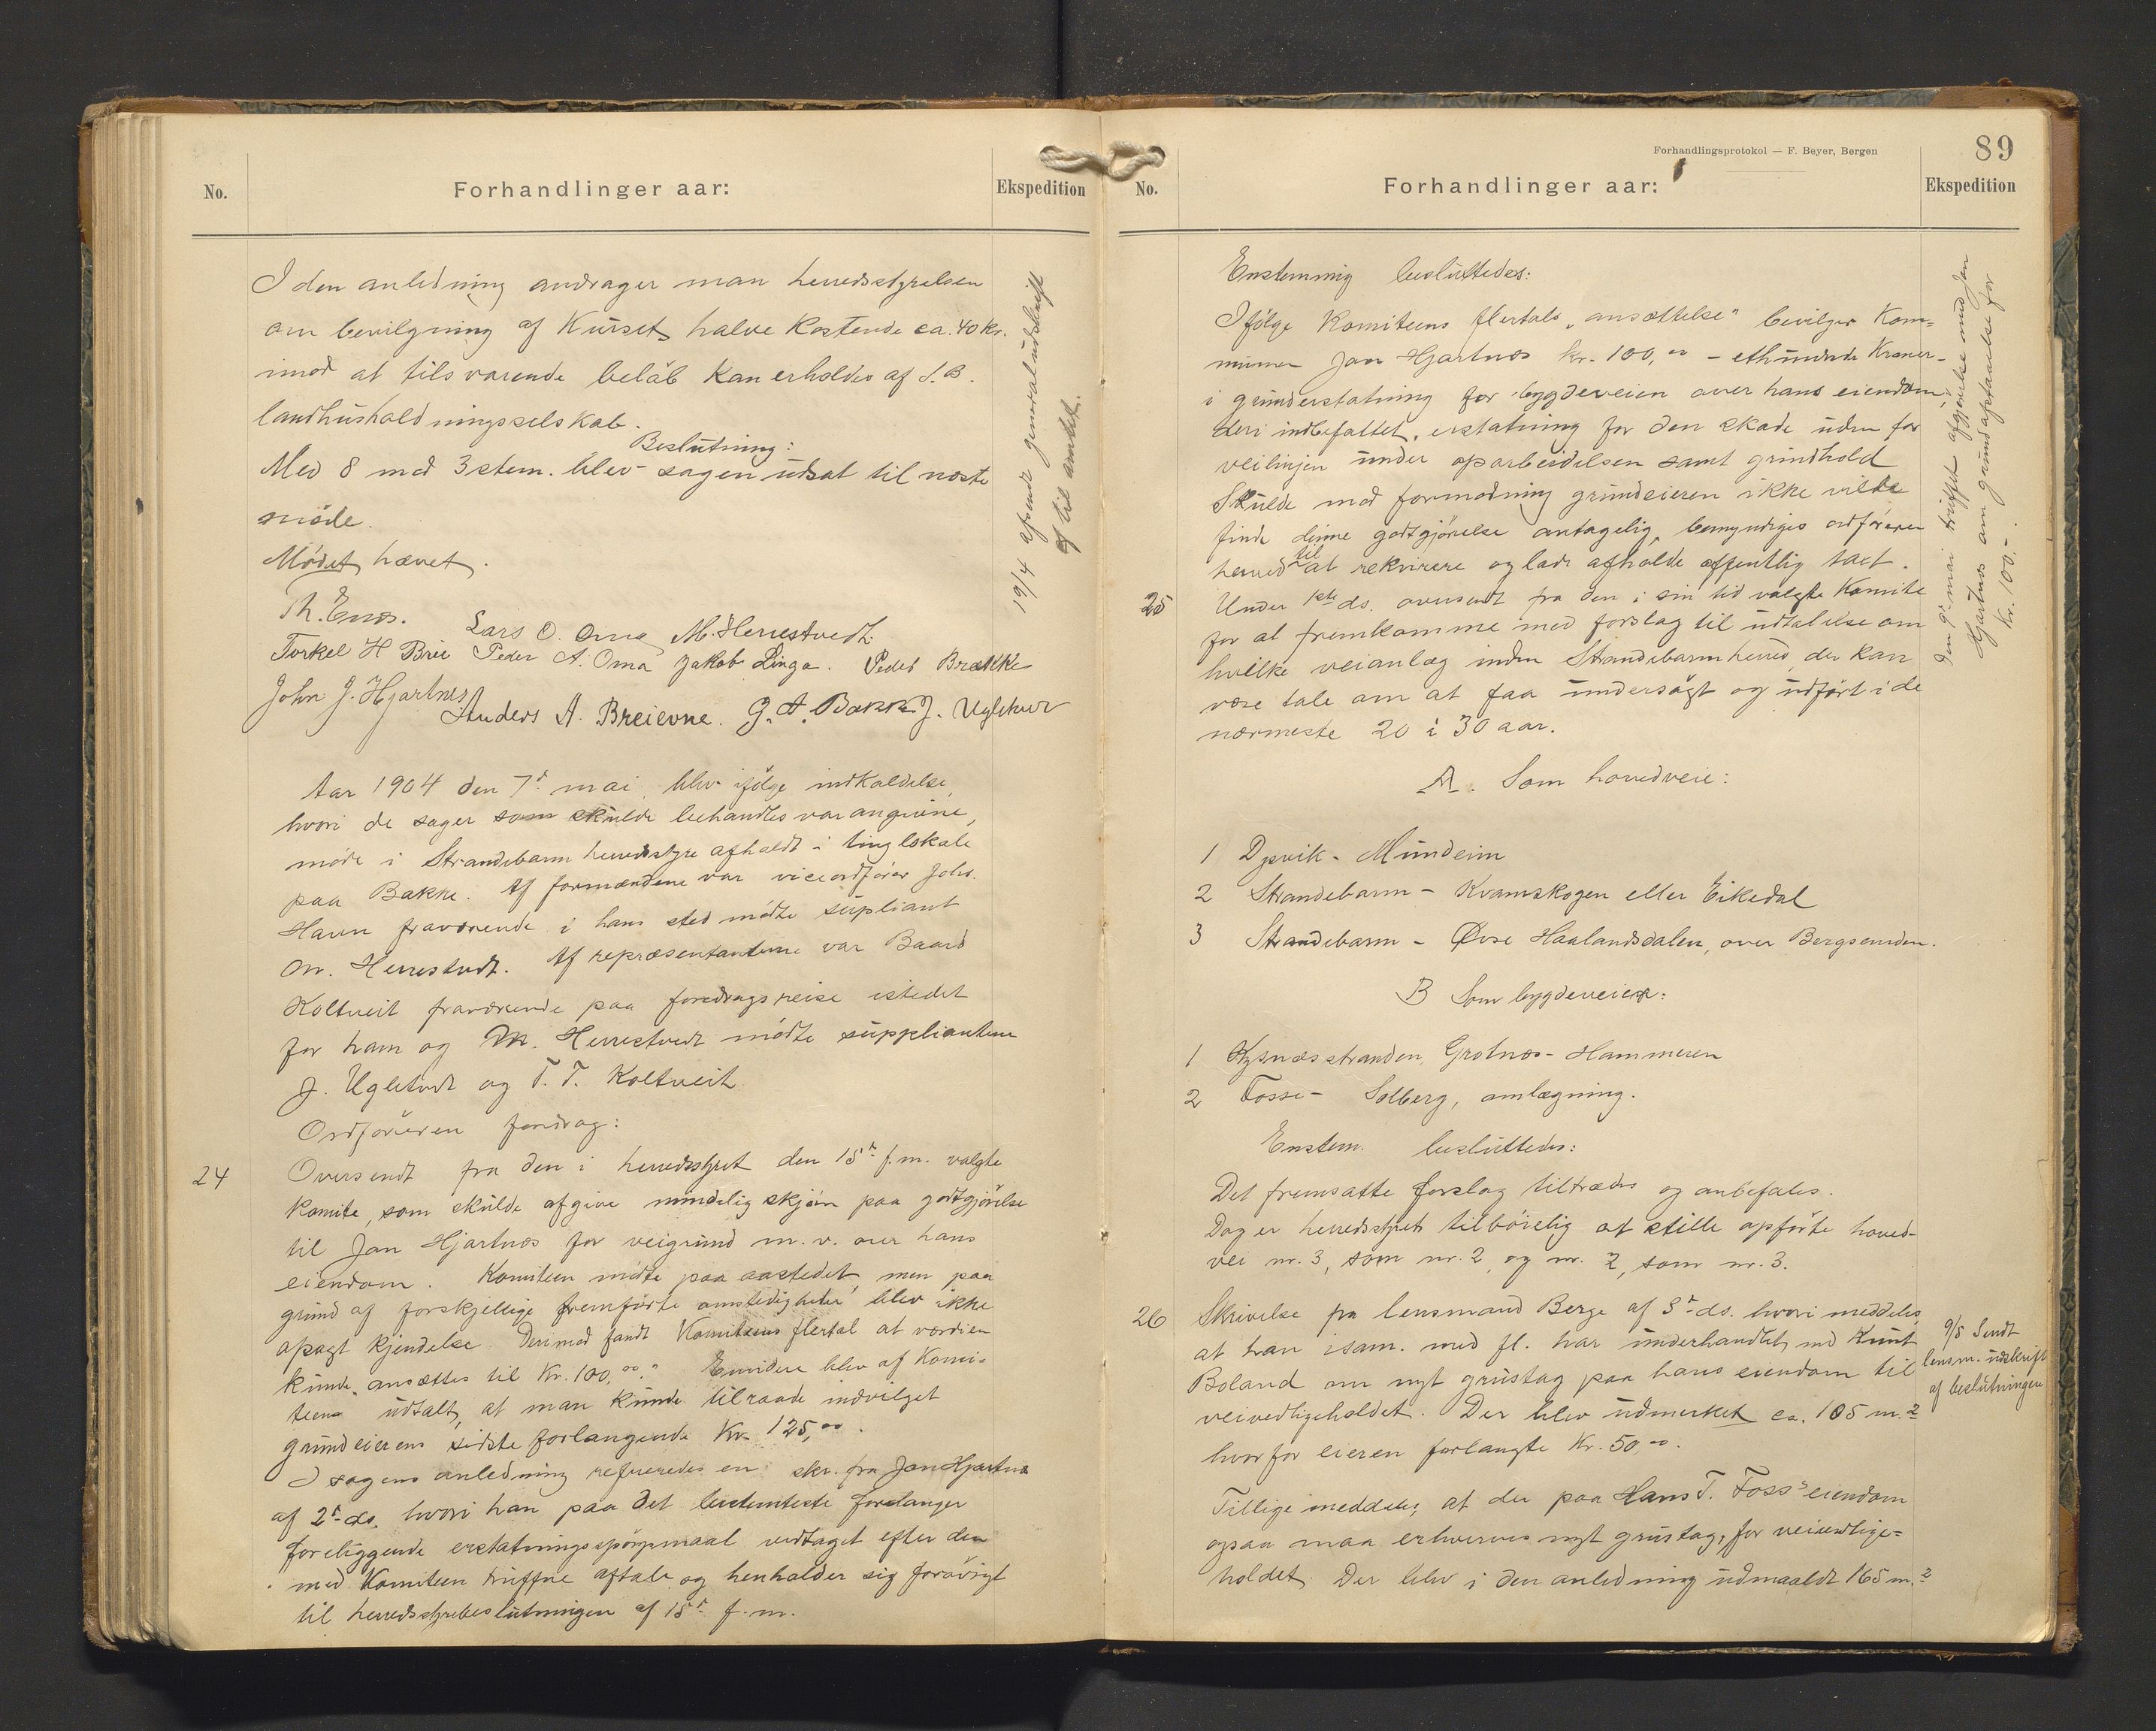 No.
Forhandlinger aar:
Ekspedition
I den anledning andrager man herredsstyrelsen
om bevilgning af Kurset's halve Kostende ca. 40 kr.
imod at tilsvarende beløb Kan erholdes af S. B.
landhusholdningsselskab.
Beslutning:
Med 8 mod 3 stem. blev sagen udsat til næste
møde.
Mødet hævet.
Th. Enæs. Lars O. Oma M. Herrestvedt
Torkel H Brei Peder A. Oma Jakob Linga. Peder Brække
John J. Hjartnes
Anders A. Breievne. G. A. Bakke J. Ugletvedt
19/4 afsendt genneral udskrift
af til amtet.
Aar 1904 den 7de mai blev ifølge indkaldelse,
hvori de sager som skulde behandles var angivne,
møde i Strandebarm herredsstyre afholdt i tinglokale
paa Bakke. Af formændene var viceordfører Johs.
Havn fraværende i hans sted mødte supliant
M. Herrestvedt. Af repræsentanterne var Baard
Koltveit fraværende paa foredragsreise istedet
for ham og M. Herrestvedt mødte supplianterne
J. Ugletvedt og T. T. Koltveit
Ordføreren foredrog:
24
Oversendt fra den i herredsstyret den 15de f. m. valgte
Komite, som skulde afgive mindelig skjøn paa godtgjørelse
til Jon Hjartnæs for veigrund m. v. over hans
eiendom. Komiteen mødte paa aastedet, men paa
grund af forskjellige fremførte omstedigheder blev ikke
afsagt kjendelse. Derimod fandt Komiteens flertal at værdien
kunde „ansættes til Kr. 100,00“. Emidere blev af Komi-
teens udtalt, at man kunde tilraade indvilget
grundeierens sidste forlangende Kr. 125,00.
I sagens anledning refereredes en skr. fra Jon Hjartnæs
af 2de ds. hvori han paa det bestemteste forelanger
foreliggende erstatningsspørgsmaal vedtaget efter den
med Komiteen truffne aftale og henholder sig forøvrigt
til herredsstyrebeslutningen af 15de f. m.
Forhandlingsprotokol — F. Beyer, Bergen
89
No.
Forhandlinger aar:
Ekspedition
Enstemmig besluttedes:
Ifølge Komiteens flertals „ansættelse“ bevilger Kom-
munen Jon Hjartnæs kr. 100,00 – ethundrede Kroner –
i grunderstatning for bygdeveien over hans eiendom,
deri indbefattet, erstatning for den skade uden for
veilinjen under oparbeidelsen samt grindhold
Skulde mod formodning grundeieren ikke vilde
finde denne godtgjørelse antagelig, bemyndiges ordføreren
herved til at rekvirere og lade afholde offentlig taxt.
Den 9de mai truffet afgjørelse med Jon
Hjartnæs om grundafstaaelse for
Kr. 100.-
25.
Under 1ste ds. oversendt fra den i sin tid valgte Komite
for at fremkomme med forslag til udtalelse om
hvilke veianlæg inden Strandebarm herred, der kan
være tale om at faa undersøgt og udført i de
nærmeste 20 à 30 aar.
A. Som hovedveie:
1 Dysvik - Mundeim
2 Strandebarm – Kvamskogen eller Eikedal
3 Strandebarm – Øvre Haalandsdalen, over Bergsenden.
B Som bygdeveier:
1 Kysnæsstranden, Grotnæs - Hammeren
2 Fosse – Solberg, omlægning.
Enstem. besluttedes:
Det fremsatte forslag tiltrædes og anbefales.
Dog er herredsstyret tilbøielig at stille opførte hoved-
vei nr. 3, som nr. 2, og nr. 2, som nr. 3.
26
Skrivelse fra lensmand Berge af 3de ds. hvori meddeles,
at han isam. med fl. har underhandlet med Knut
Boland om nyt grustag paa hans eiendom til
veivedligeholdet. Der blev udmerket ca. 105 m.2
hvorfor eieren forlangte Kr. 50,00.
9/5 Sendt
lensm. udskrift
af beslutningen
Tillige meddeles, at der paa Hans T. Foss's eiendom
ogsaa maa erhverves nyt grustag, for veivedlige-
holdet. Der blev i den anledning udmaaldt 165 m.2